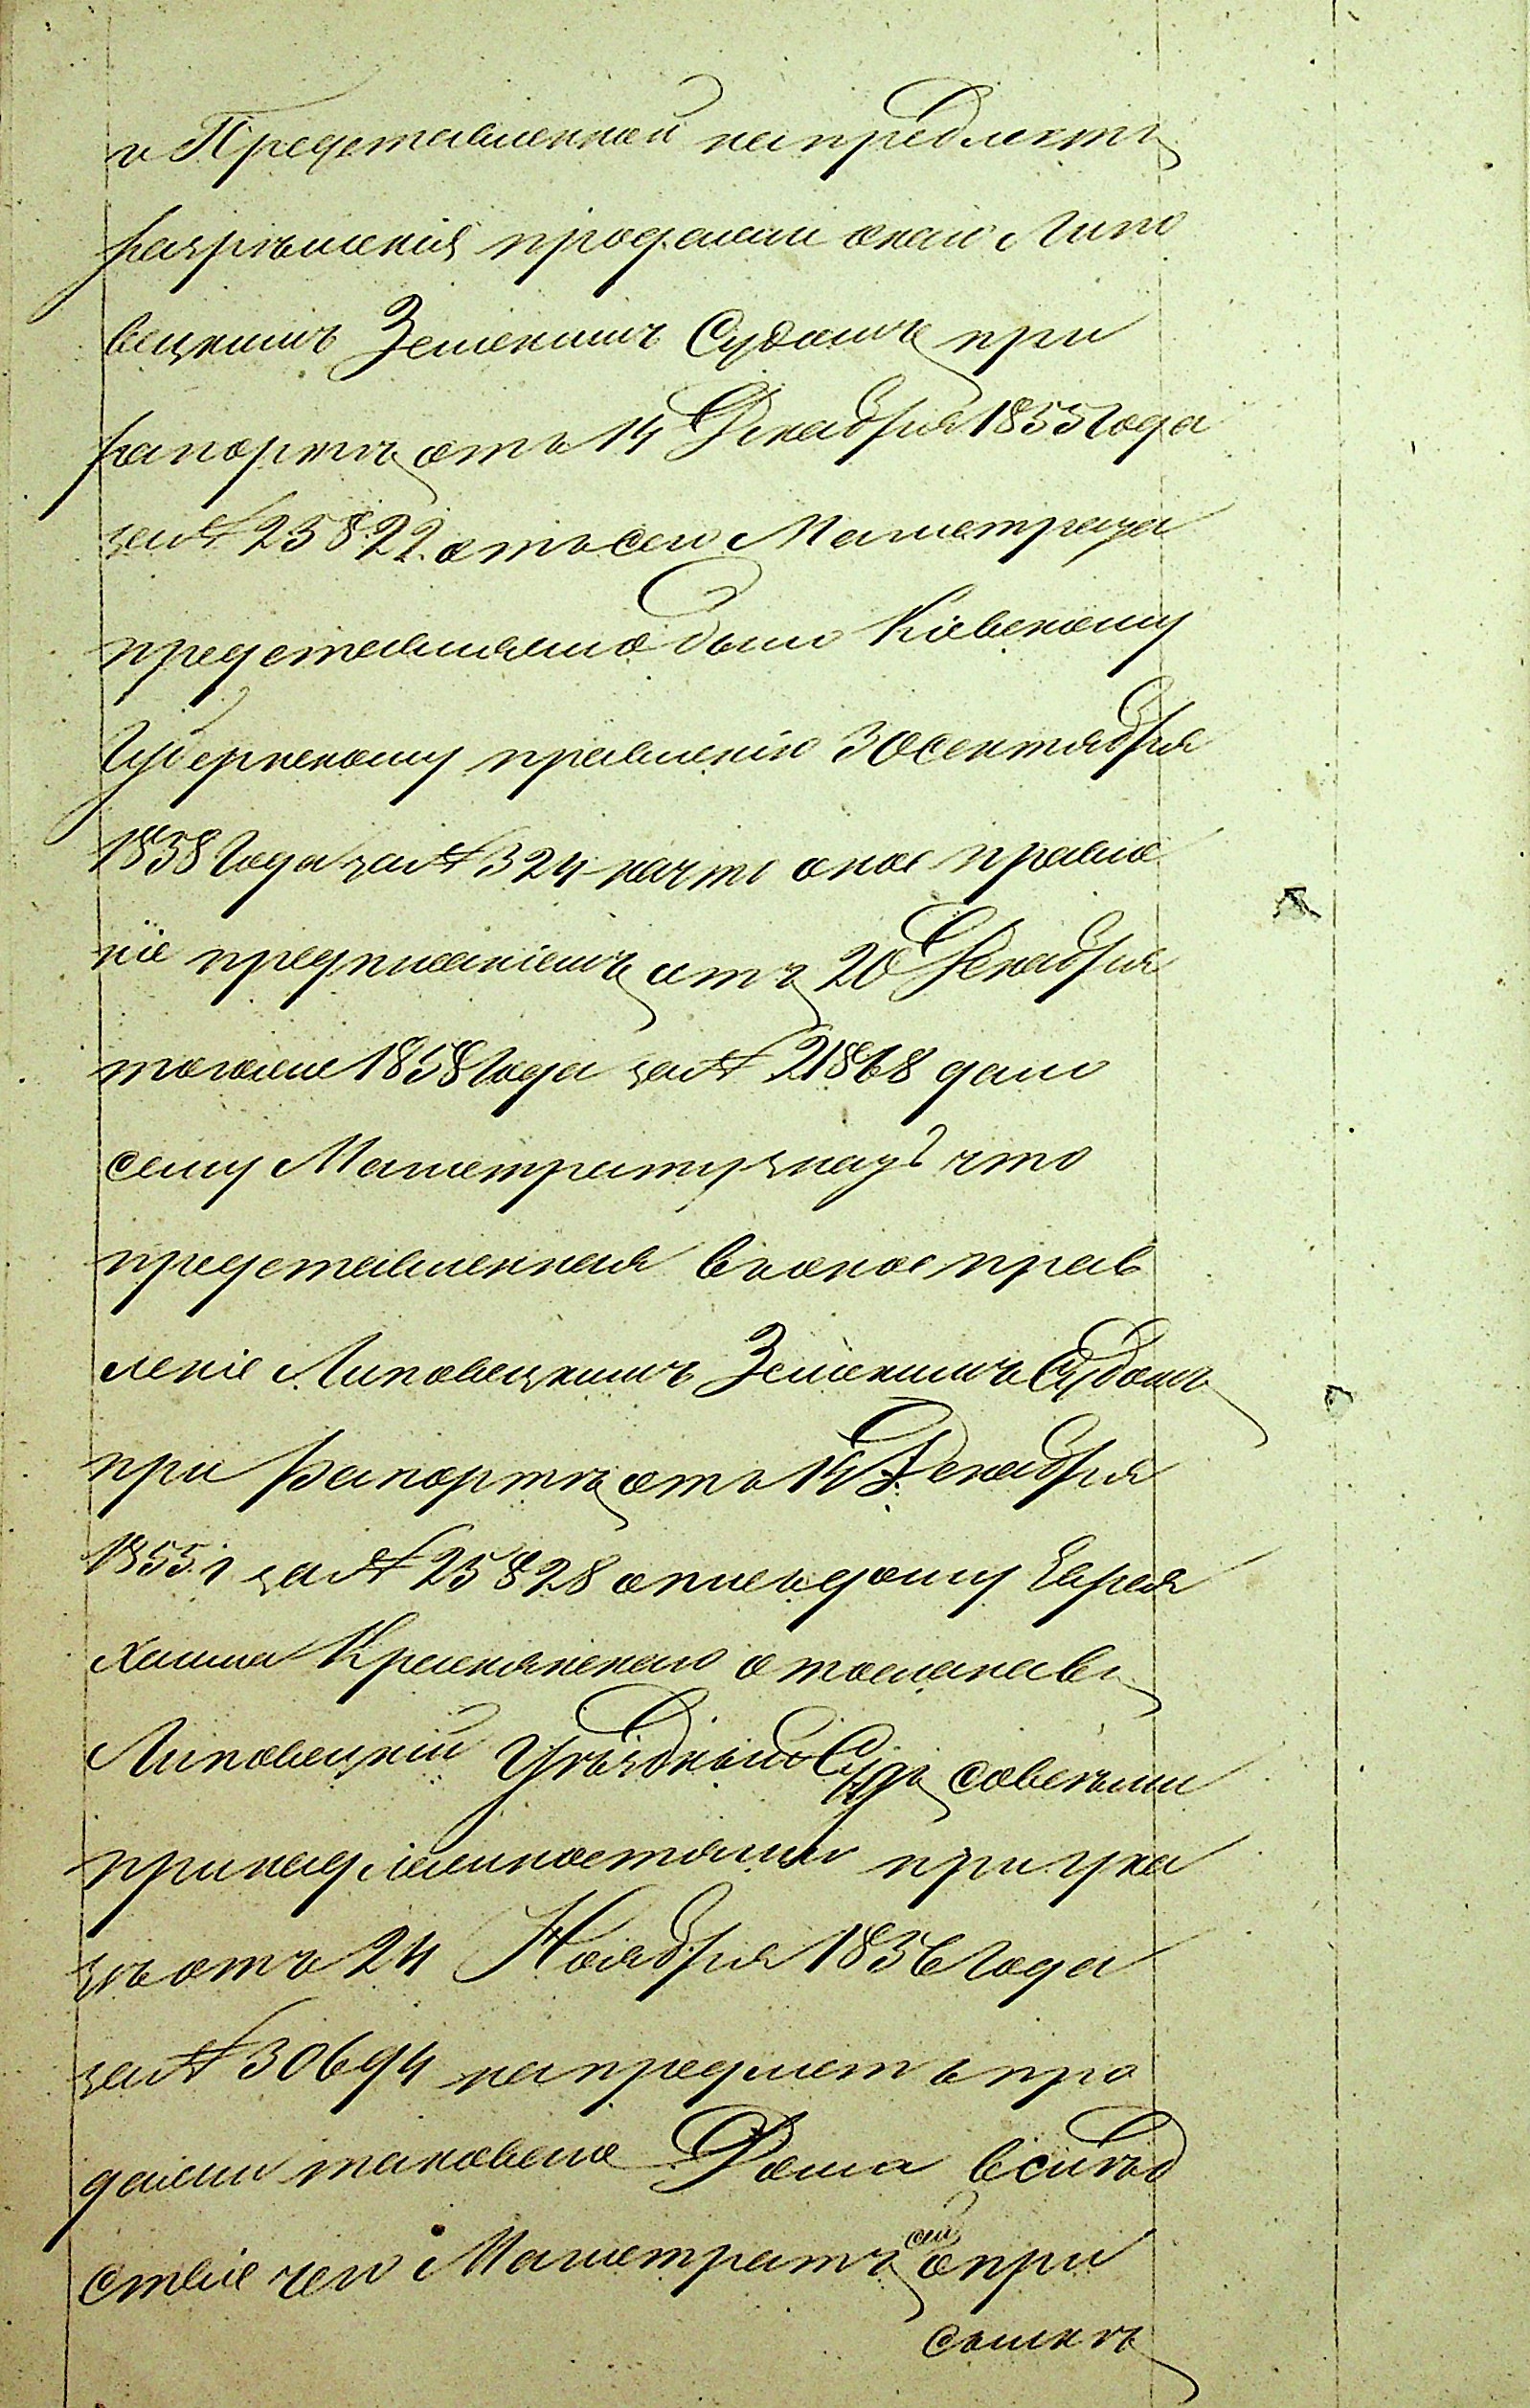 и Представленной на предметъ
разрѣшенія продажи оной Липо
вецкимъ Земскимъ Судомъ при
рапортѣ отъ 14 Декабря 1855 года
за № 25822. отъ сего Магистрата
представляемо было Кіевскому
Губернскому правленію 30 сентября
1858 года за № 324 на что оное правле
ніе предписаніемъ отъ 20 Декабря
тогоже 1858 года за № 21868 дало
сему Магистрату знать что
представленная въ оное прав
леніе Липовецкимъ Земскимъ Судомъ
при Рапортѣ отъ 14 Декабря
1855 г за № 25828 опись дому Еврея
Хаима отослана въ
Липовецкій Уѣздный Судъ совсѣми
принадлежностями при ука
зѣ отъ 24 Ноября 1856 года
за № 30694 на предметъ про
дажи таковаго Дома вслѣд
ствіе чего Магистратъ сей о при
сылкѣ